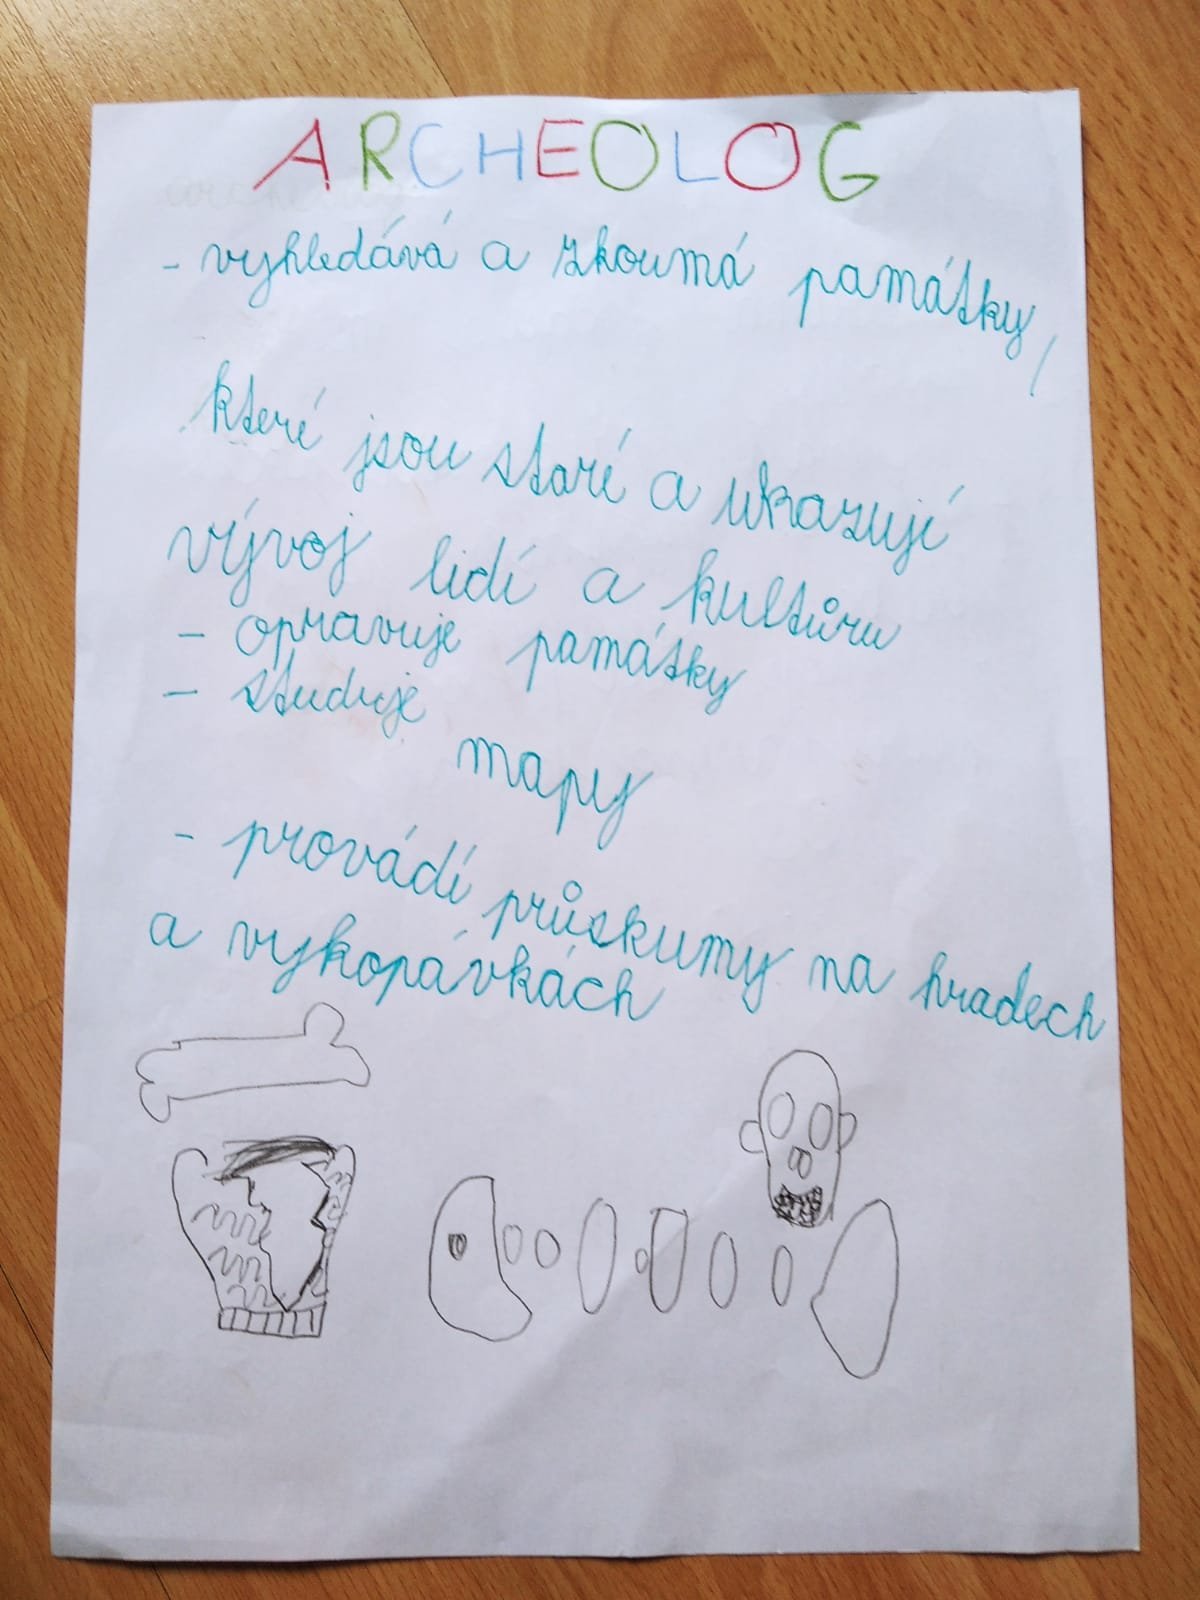 ARCHEOLOG
- vyhledává a zkoumá památky,
které jsou staré a ukazují
vývoj lidí a kultůru
- opravuje památky
- studuje
mapy
- provádí průzkumy na hradech
a vykopávkách